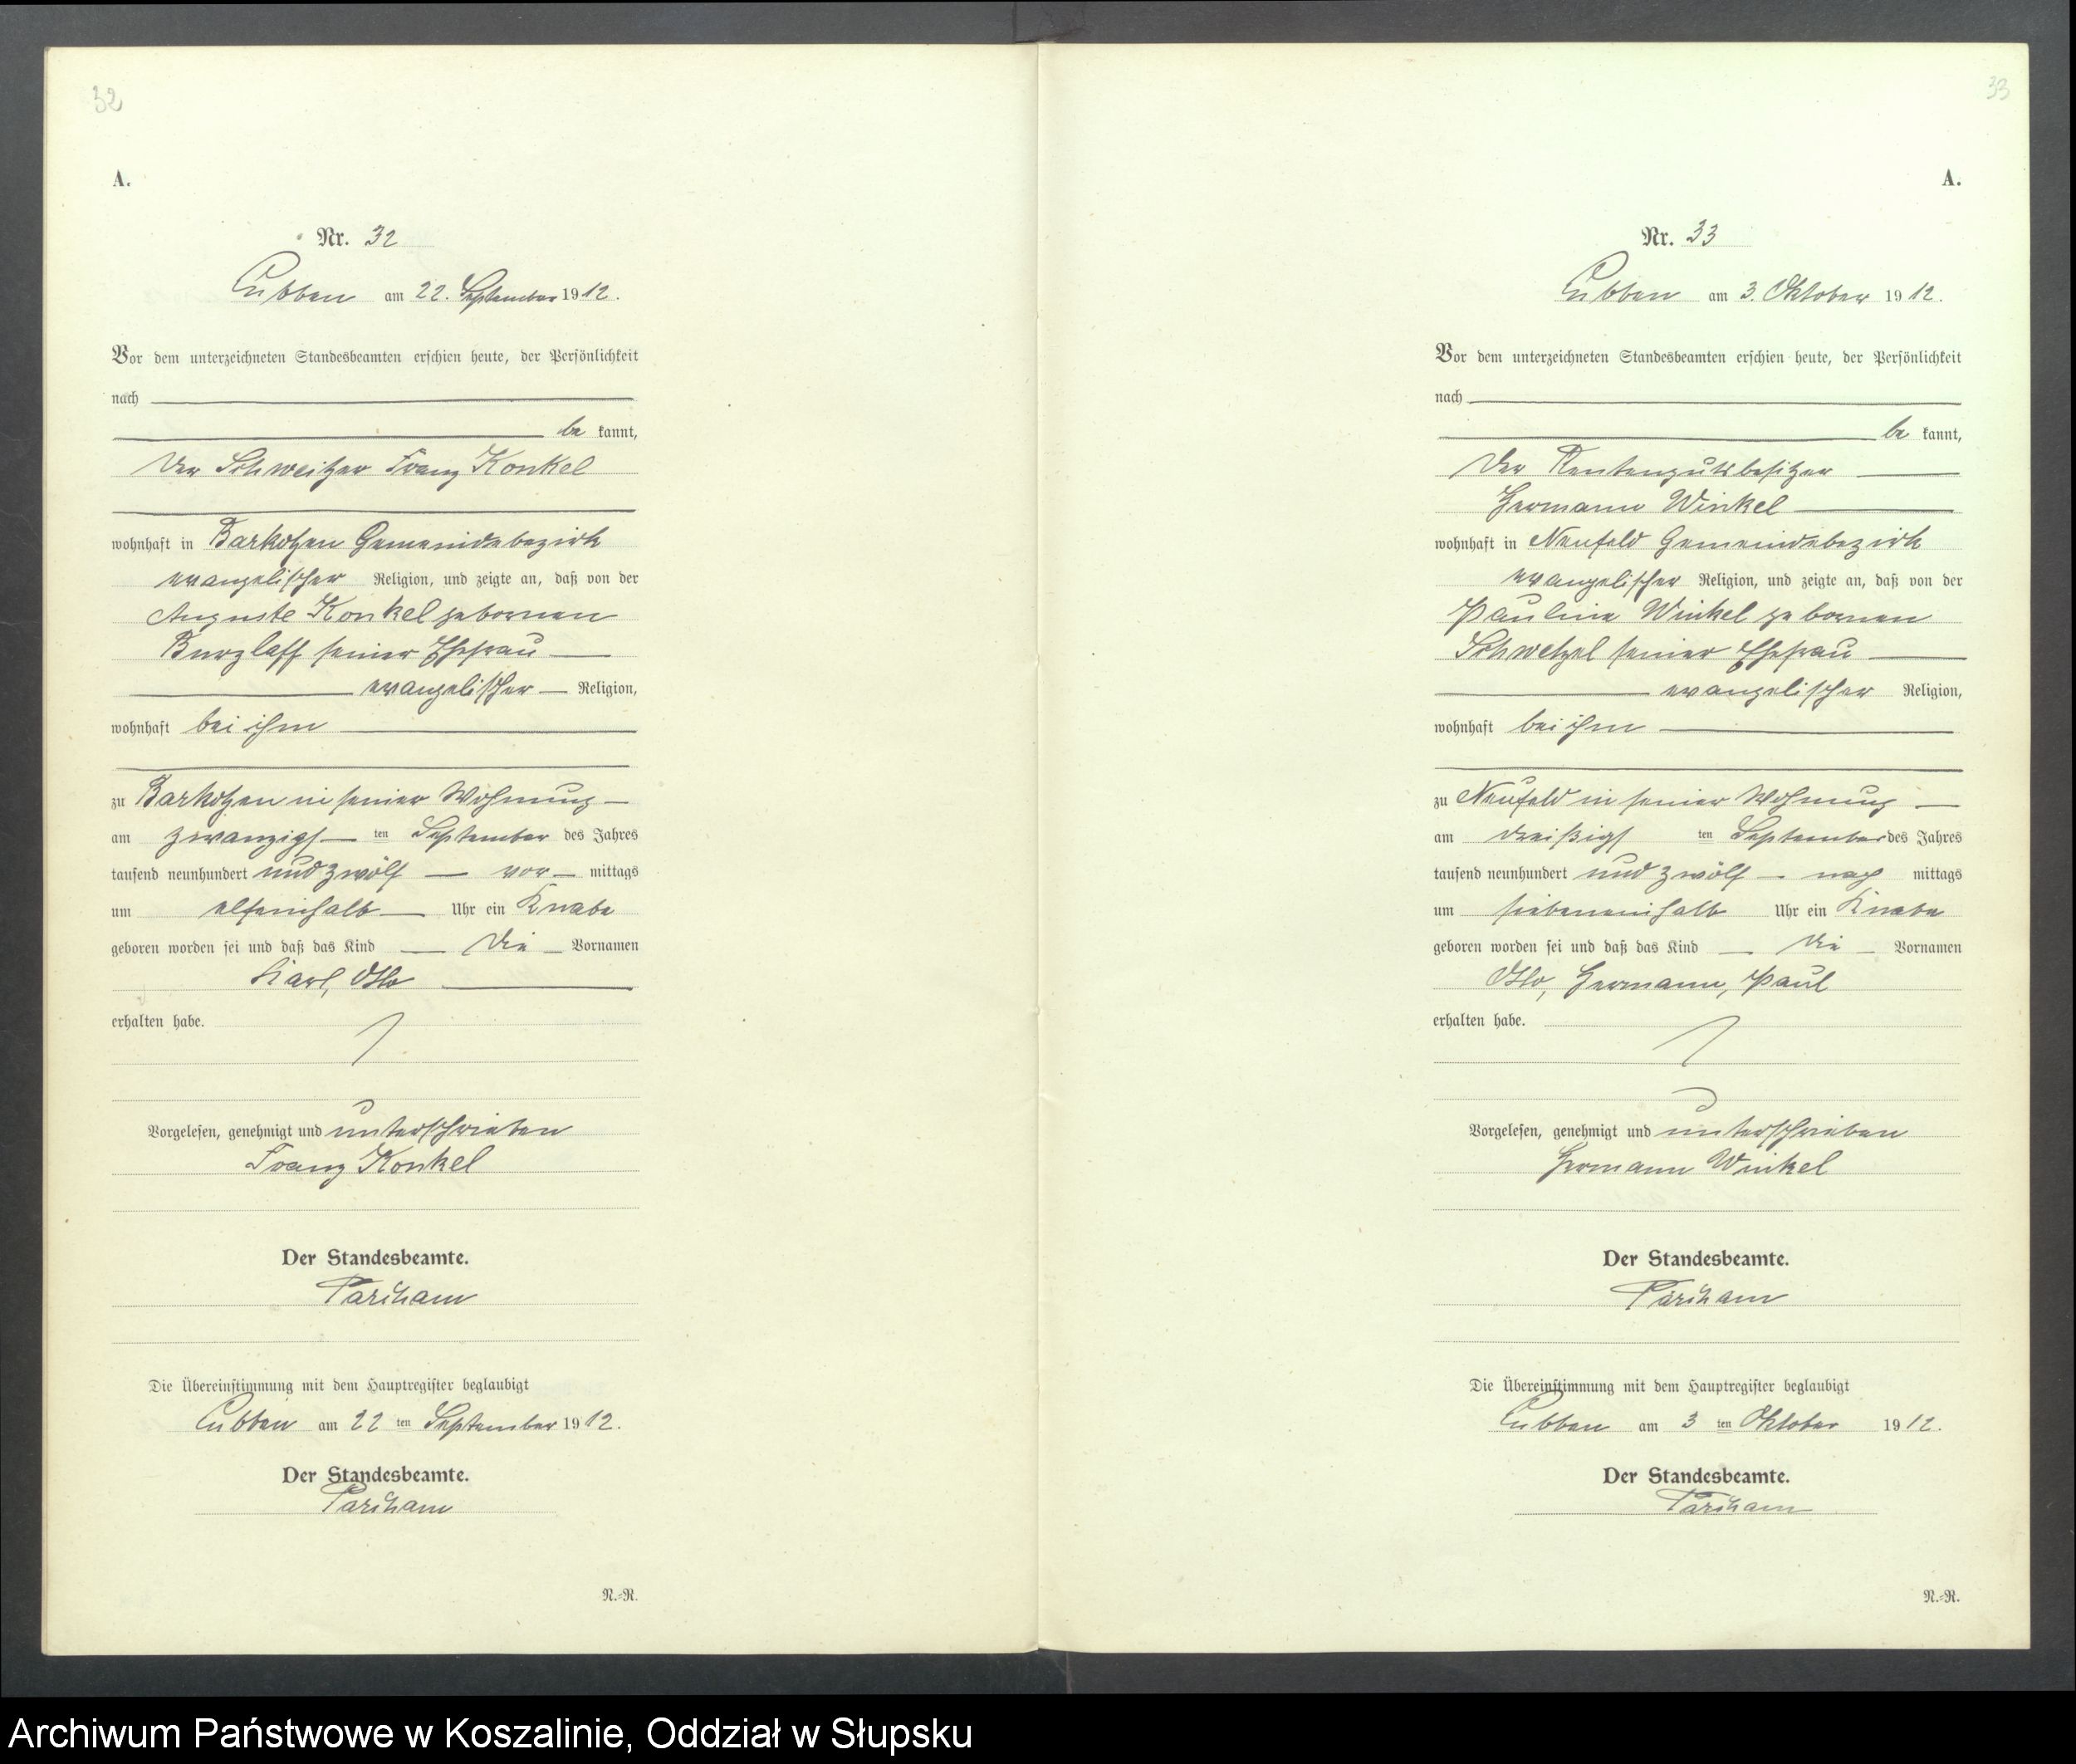 32
A.
Nr. 32
Lubben am 22. September 1912.
Vor dem unterzeichneten Standesbeamten erschien heute, der Persönlichkeit
nach
be kannt,
der Schweitzer Franz Konkel
wohnhaft in Barkotzen Gemeindebezirk
evangelischer Religion, und zeigte an, daß von der
Auguste Konkel gebornen
Burzlaff seiner Ehefrau
evangelischer Religion,
wohnhaft bei ihm
zu Barkotzen in seiner Wohnung
am zwanzigs ten September des Jahres
tausend neunhundert und zwölf vor mittags
um elfeinhalb Uhr ein Knabe
geboren worden sei und daß das Kind die Vornamen
Karl, Otto
erhalten habe.
Vorgelesen, genehmigt und unterschrieben
Franz Konkel
Der Standesbeamte.
Die Übereinstimmung mit dem Hauptregister beglaubigt
Lubben am 22 ten September 1912.
Der Standesbeamte.
N.=R.
33
A.
Nr. 33
Lubben am 3. Oktober 1912.
Vor dem unterzeichneten Standesbeamten erschien heute, der Persönlichkeit
nach
be kannt,
der Rentengutsbesitzer
Hermann Winkel
wohnhaft in Neufeld Gemeindebezirk
evangelischer Religion, und zeigte an, daß von der
Pauline Winkel gebornen
Schwetzel seiner Ehefrau
evangelischer Religion,
wohnhaft bei ihm
zu Neufeld in seiner Wohnung
am dreißigs ten September des Jahres
tausend neunhundert und zwölf nach mittags
um siebeneinhalb Uhr ein Knabe
geboren worden sei und daß das Kind die Vornamen
Otto, Hermann, Paul
erhalten habe.
Vorgelesen, genehmigt und unterschrieben
Hermann Winkel
Der Standesbeamte.
Die Übereinstimmung mit dem Hauptregister beglaubigt
Lubben am 3 ten Oktober 1912.
Der Standesbeamte.
N.=R.
Archiwum Państwowe w Koszalinie, Oddział w Słupsku